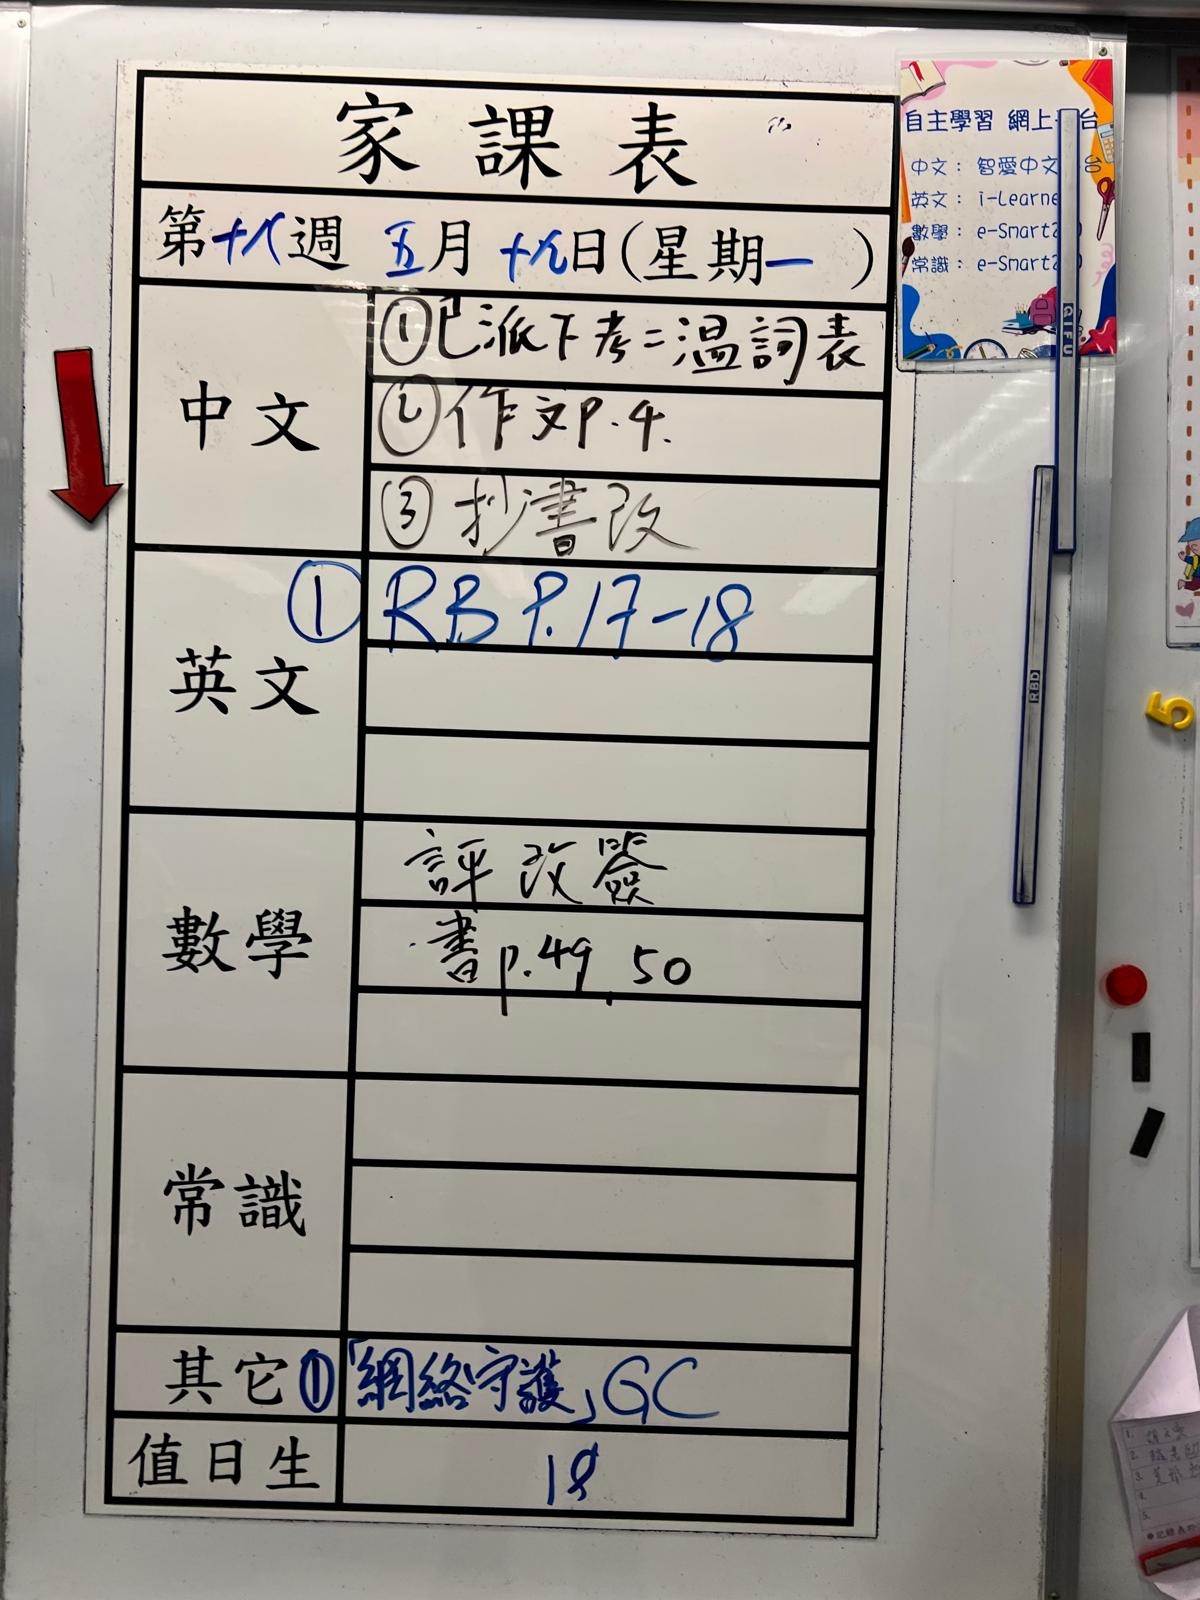 家課表
第十八週 五月十九日(星期一 )
中文
①已派下考二溫詞表
②作文P.4.
③抄書改
英文
① RB P.17-18
數學
評改簽
書p.49, 50
常識
其它 ①「網絡守護」GC
值日生
18
自主學習 網上 台
中文: 智愛中文
英文: i-Learne
數學: e-Smart
常識: e-Smart
QIFU
RBD
5